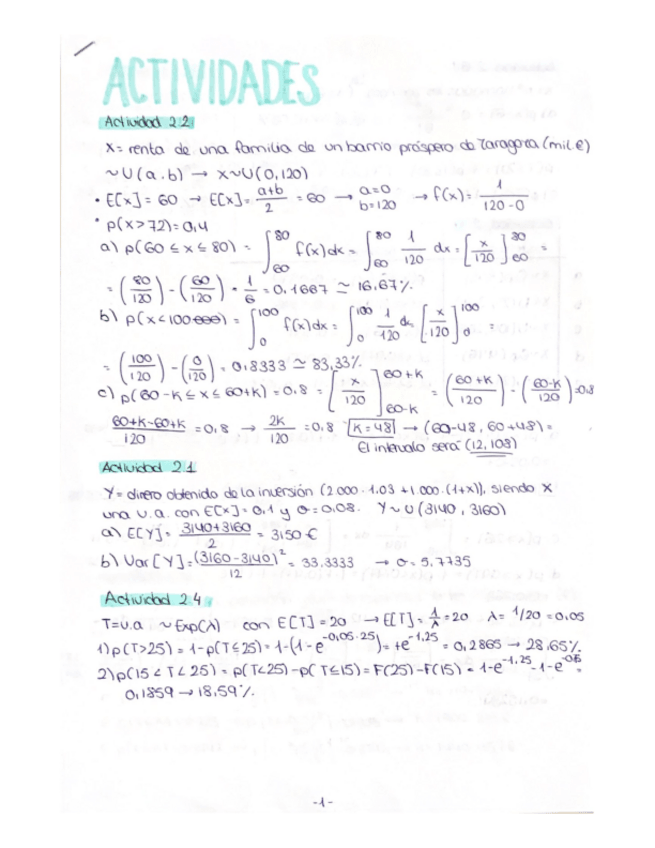 ACTIVIDADES
Actividad 2.2
X= renta de una familia de un barrio próspero de Zaragoza (mil €)
~U(a,b) → X~U(0,120)
• E[x] = 60 → E[x] = a+b/2 = 60 → a=0 b=120 → f(x) = 1/120-0
• p(x>72)=0,4
a) p(60 ≤ x ≤ 80) = ∫60^80 f(x)dx = ∫60^80 1/120 dx = [x/120]60^80 =
= (80/120) - (60/120) = 1/6 = 0,1667 ≃ 16,67%
b) p(x<100) = ∫0^100 f(x)dx = ∫0^100 1/120 dx [x/120]0^100 =
= (100/120) - (0/120) = 0,8333 ≃ 83,33%
c) p(60-K ≤ x ≤ 60+K) = 0,8 = [x/120]60-K^60+K = (60+K/120) - (60-K/120) = 0,8
60+K-60+K/120 = 0,8 → 2K/120 = 0,8 K=48 → (60-48, 60+48) =
El intervalo será (12,108)
Actividad 2.1
Y= dinero obtenido de la inversión (2000·1.03 + 1.000·(1+X)), siendo X
una v.a. con E[x]=0,1 y σ=0.08. Y~U(3140, 3160)
a) E[Y] = 3140+3160/2 = 3150€
b) Var[Y] = (3160-3140)²/12 = 33.3333 → σ = 5.7735
Actividad 2.4
T=v.a. ~Exp(λ) con E[T]=20 → E[T]=1/λ=20 λ=1/20=0.05
1) p(T>25) = 1-p(T≤25) = 1-(1-e^-0,05·25) = +e^-1,25 = 0,2865 → 28,65%
2) p(15<T<25) = p(T<25)-p(T≤15) = F(25)-F(15) = 1-e^-1,25-1-e =
0,1859 → 18,59%
-1-